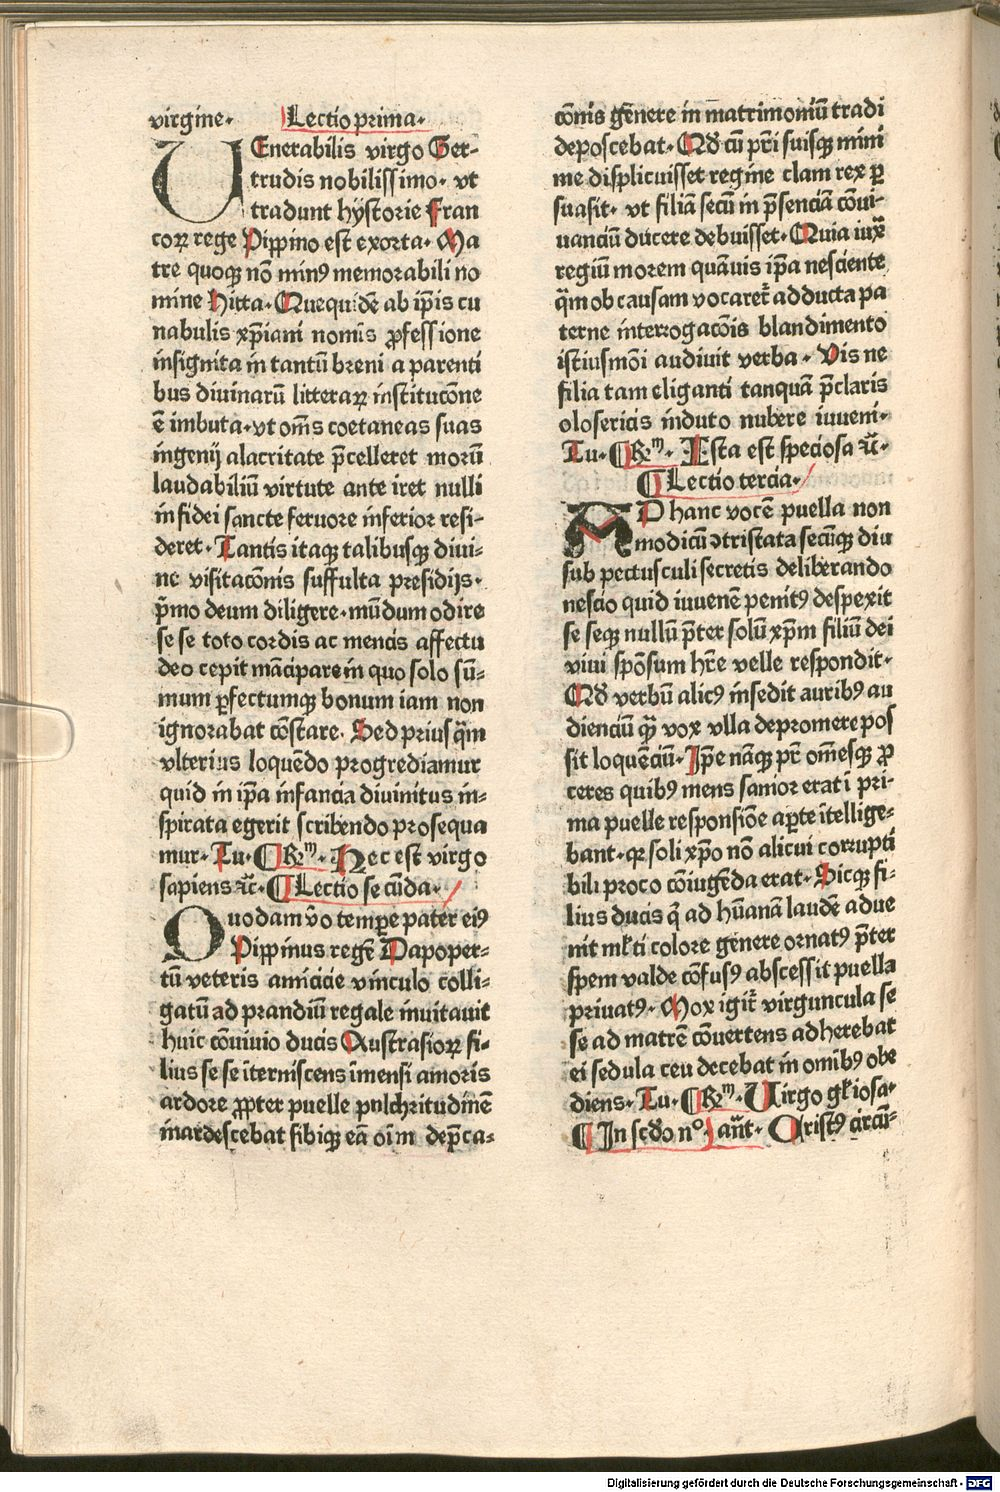 virgine. Lectio prima.
VEnerabilis virgo Ger-
trudis nobilissimo. vt
tradunt hystorie Fran
coꝝ rege Pippino est exorta. Ma
tre quoqꝫ nō minꝰ memorabili no
mine Hitta. Quequidē ab ip̄is cu
nabulis xp̄iani nomīs ꝓfessione
insignita in tantū breni a parenti
bus diuinarū litteraꝝ institucōne
ē imbuta. vt om̄s coetaneas suas
ingenij alacritate p̄celleret morū
laudabiliū virtute ante iret nulli
in fidei sancte feruore inferior resi-
deret. Tantis itaqꝫ talibusqꝫ diui-
ne visitacōnis suffulta presidijs.
p̄mo deum diligere. mūdum odire
se se toto cordis ac mentis affectu
deo cepit mācipare in quo solo sū-
mum ꝑfectumqꝫ bonum iam non
ignorabat cōstare. Sed prius q̄m
vlterius loquēdo progrediamur
quid in ip̄a infancia diuinitus in-
spirata egerit scribendo prosequa
mur. Tu. R̄m. Hec est virgo
sapiens ꝛc̄. Lectio se cūda.
Quodam v̄o tempore pater eiꝰ
Pippinus regē Dapoper-
tū veteris amicicie vinculo colli-
gatū ad prandiū regale inuitauit
huic cōuiuio ducis Austrasioꝝ fi-
lius se se īterniscens īmensi amoris
ardore ꝓpter puelle pulchritudinē
inardescebat sibiqꝫ eā oīm dep̄ca-
cōnis gēnere in matrimoniū tradi
deposcebat. Qd̄ cū pr̄i suisqꝫ mini
me displicuisset regine clam rex ꝑ
suasit. vt filiā secū in p̄senciā cōui-
uanciū ducere debuisset. Quia iux̄
regiū morem quāuis ip̄a nesciente
q̄m ob causam vocaret̄ adducta pa
terne interrogacōis blandimento
istiusmōi audiuit verba. Vis ne
filia tam eliganti tanquā p̄claris
olosericis induto nubere iuueni.
Tu. R̄m. Ista est speciosa ꝛc̄.
Lectio tercia.
AD hanc vocē puella non
modicū ꝯtristata secūqꝫ diu
sub pectusculi secretis deliberando
nescio quid iuuenē penitꝰ despexit
se seqꝫ nullū p̄ter solū xp̄m filiū dei
viui spōnsum hr̄e velle respondit.
Qd̄ verbū alicꝰ insedit auribꝰ au
dienciū qꝫ vox vlla depromere pos
sit loquēciū. Ip̄e nāqꝫ pr̄ om̄esqꝫ ꝓ
ceres quibꝰ mens sanior erat ī pri-
ma puelle responsiōe aꝑte ītellige-
bant. qꝛ soli xp̄o nō alicui corrupti
bili proco cōiugēda erat. Sicqꝫ fi-
lius ducis q̄ ad hūanā laudē adue
nit ml̄ti colore genere ornatꝰ p̄ter
spem valde cōfusꝰ abscessit puella
priuatꝰ. Mox igit̄ virguncula se
se ad matrē cōuertens adherebat
ei sedula ceu decebat in omībꝰ obe
diens. Tu. R̄m. Uirgo gl̄iosa.
In scd̄o n̊. an̄t. Oristꝰ circūi-